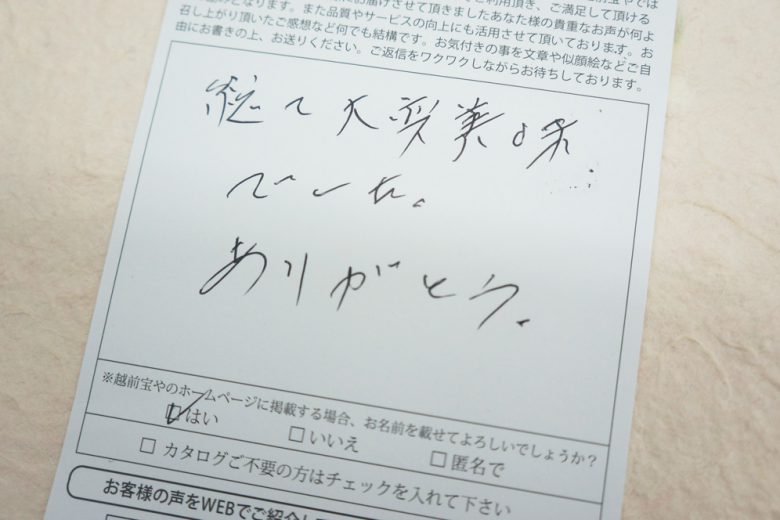 ご利用頂き、ご満足して頂ける
お届けさせて頂きましたあなた様の貴重なお声が何よ
となります。また品質やサービスの向上にも活用させて頂いております。お
召し上がり頂いたご感想など何でも結構です。お気付きの事を文章や似顔絵などご自
由にお書きの上、お送りください。ご返信をワクワクしながらお待ちしております。
総て大変美味
でした。
ありがとう。
※越前宝やのホームページに掲載する場合、お名前を載せてよろしいでしょうか？
☑はい □いいえ □匿名で
□ カタログご不要の方はチェックを入れて下さい
お客様の声をWEBでご紹介し